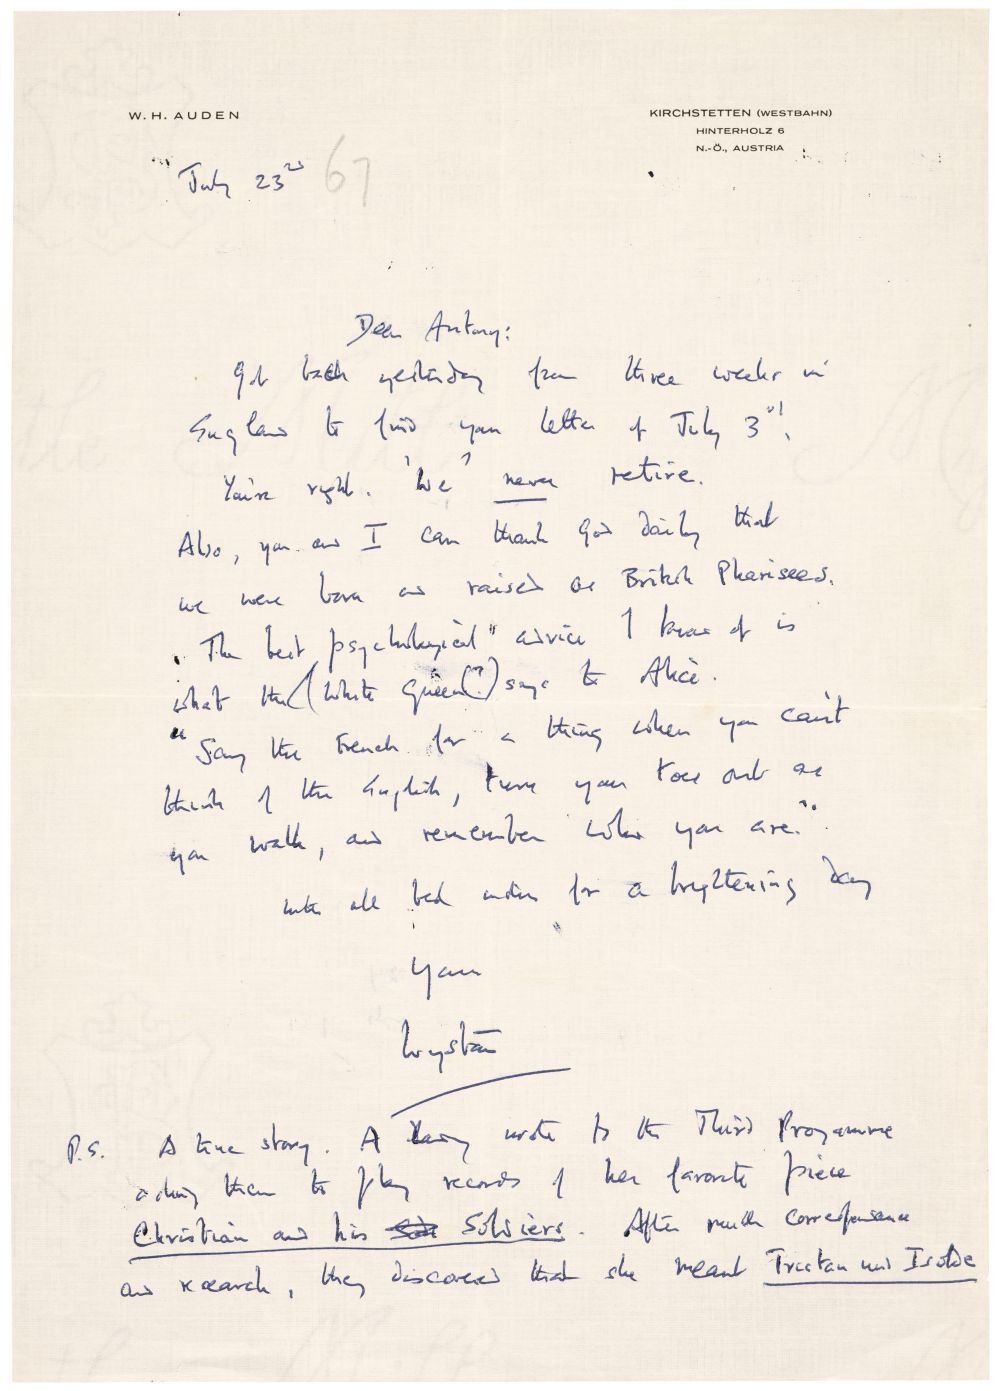 W. H. AUDEN
KIRCHSTETTEN (WESTBAHN)
HINTERHOLZ 6
N.-Ö., AUSTRIA
July 23rd 67
Dear Antony:
Got back yesterday from three weeks in
England to find your letter of July 3rd.
You're right. 'We' never retire.
Also, you and I can thank God daily that
we were born and raised as British Pharisees.
The best psychological" advice I know of is
what the (White Queen(?) says to Alice.
"Say the French for a thing when you can't
think of the English, turn your toes out as
you walk, and remember who you are."
with all best wishes for a brightening day
Yours
Wystan
P.S. A true story. A lady wrote to the Third Programme
asking them to play records of her favorite piece
Christian and his Soldiers. After much correspondence
and research, they discovered that she meant Tristan und Isolde